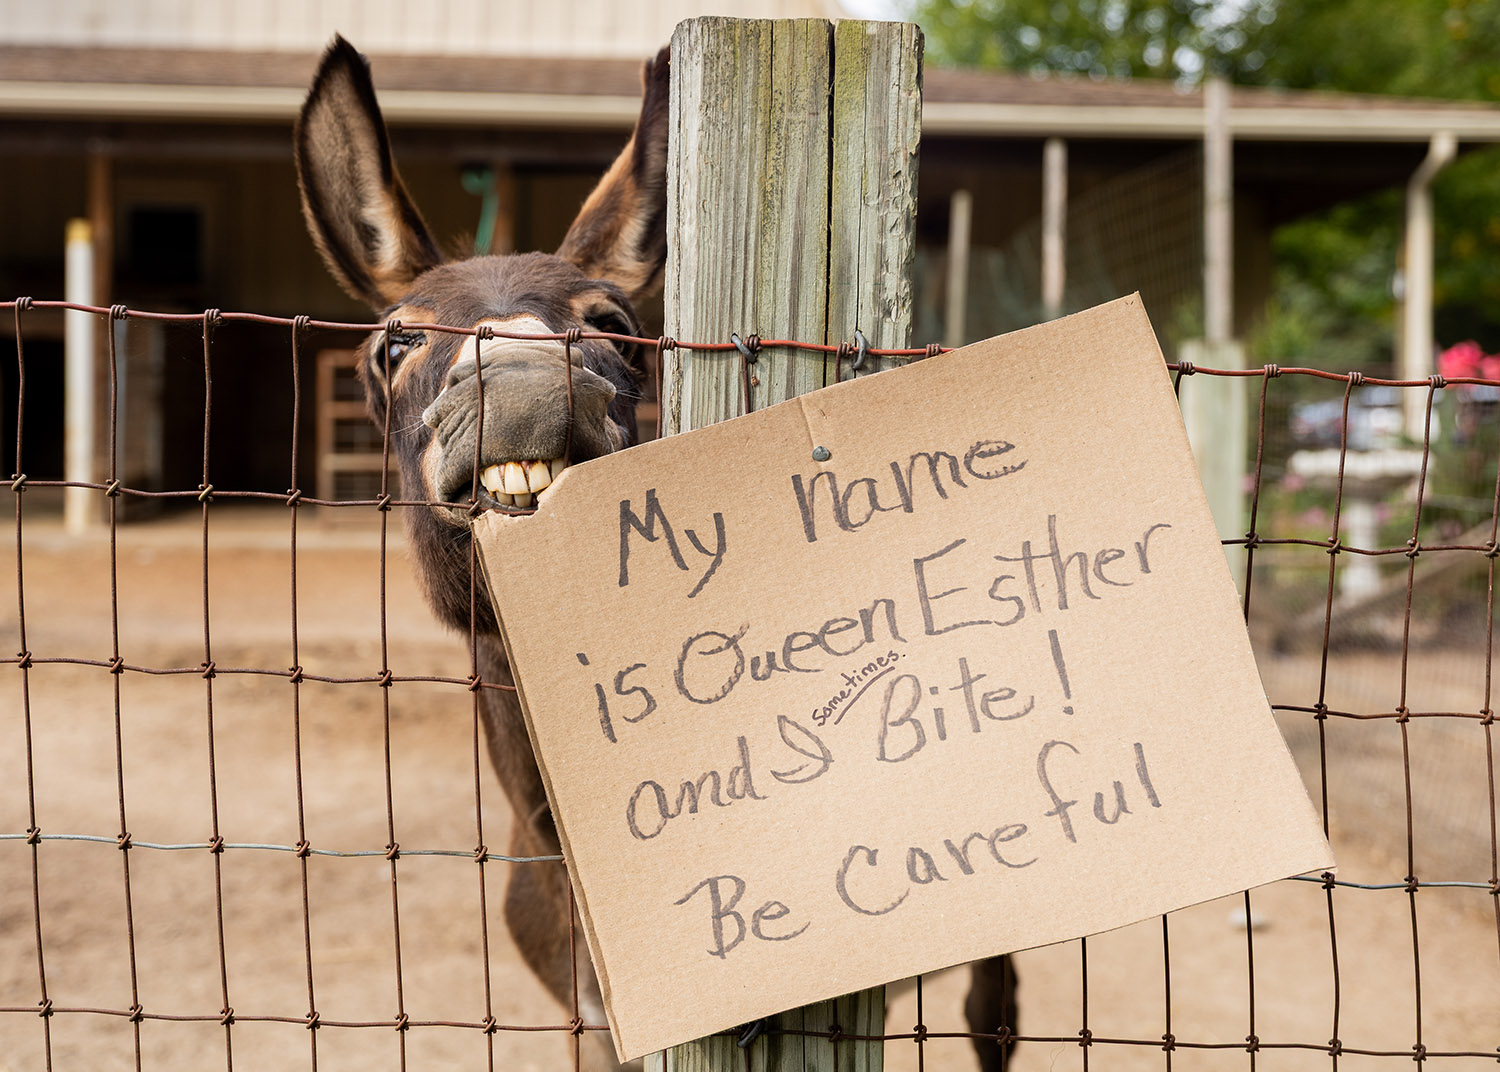 My name
is Queen Esther
and I sometimes. Bite!
Be Careful